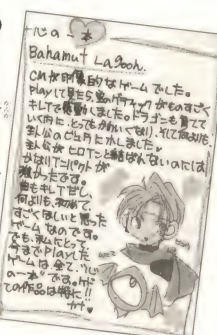 心の一本
Bahamut Lagoon.
CMが印象的なゲームでした。
Playして見たら、絵のグラフィックがものすごく
キレイで感動しました。ドラゴンも育てて
いく内に、とってもかわいくなり、そして何よりも、
主人公が
主人公がヒロインと結ばれないのには
かなりインパクトが
強かったです。
曲もキレイだし
何よりも、初めて、
すごくほしいと思った
ゲームなのです。
でも、私にとって、
今までPlayした
ゲームは全て、"心
の一本"です。
この作品は特に!!